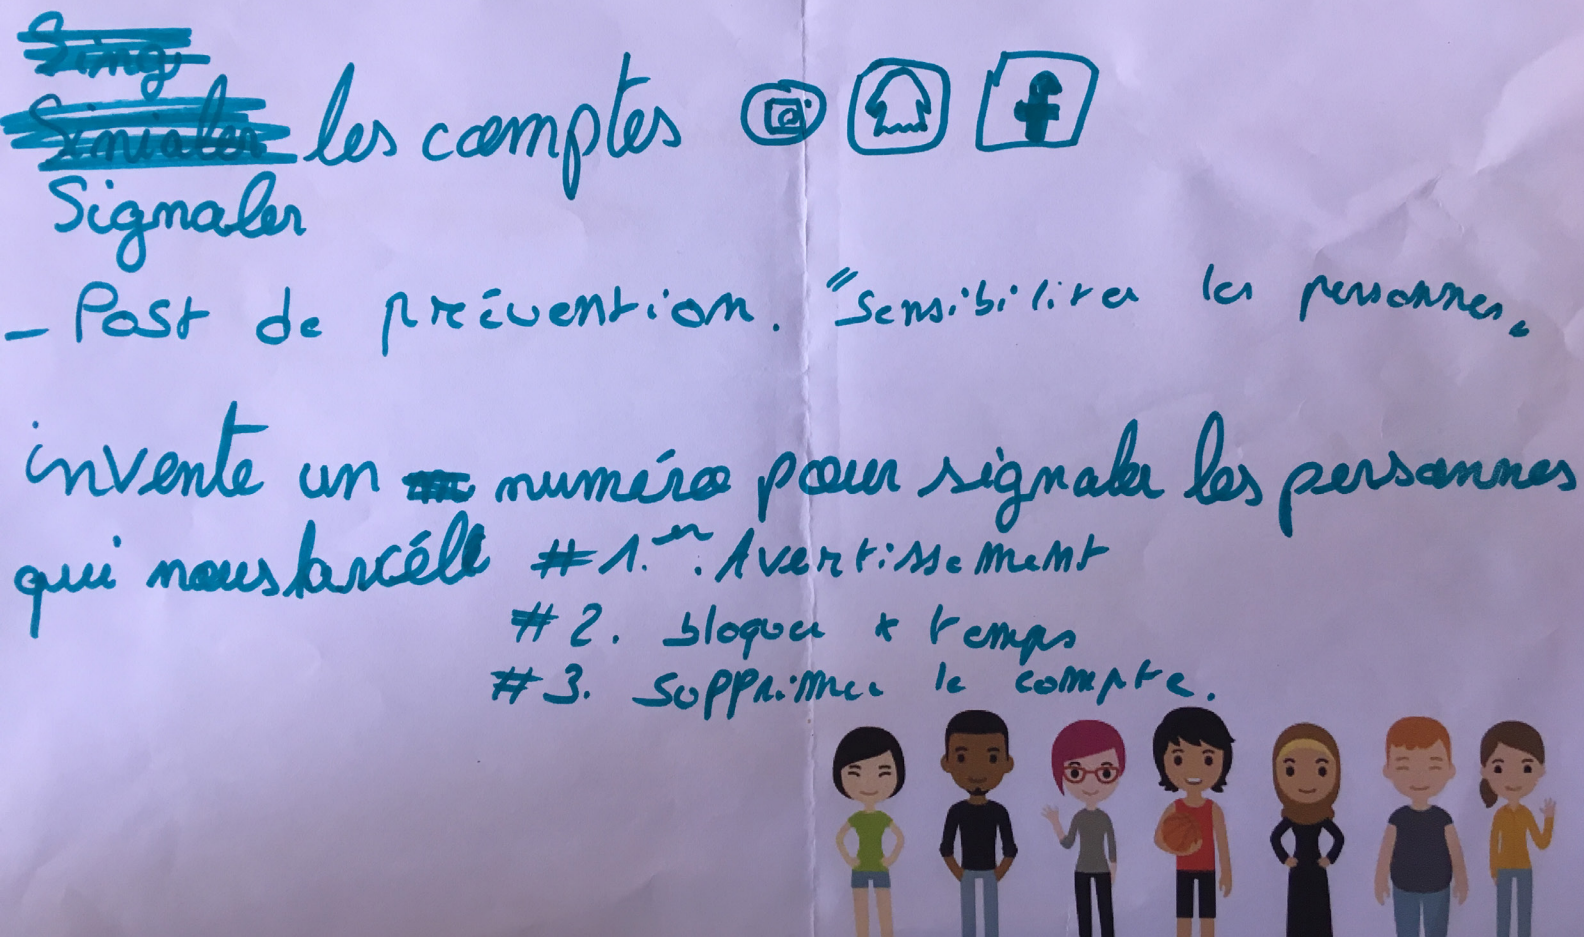 Sing
Sinialer les comptes f
Signaler
- Post de prévention. "Sensibiliter les personnes.
invente un numéro pour signaler les personnes
qui nous harcéle #1.er. Avertissement
#2. bloquer * temps
#3. Supprimer le compte.